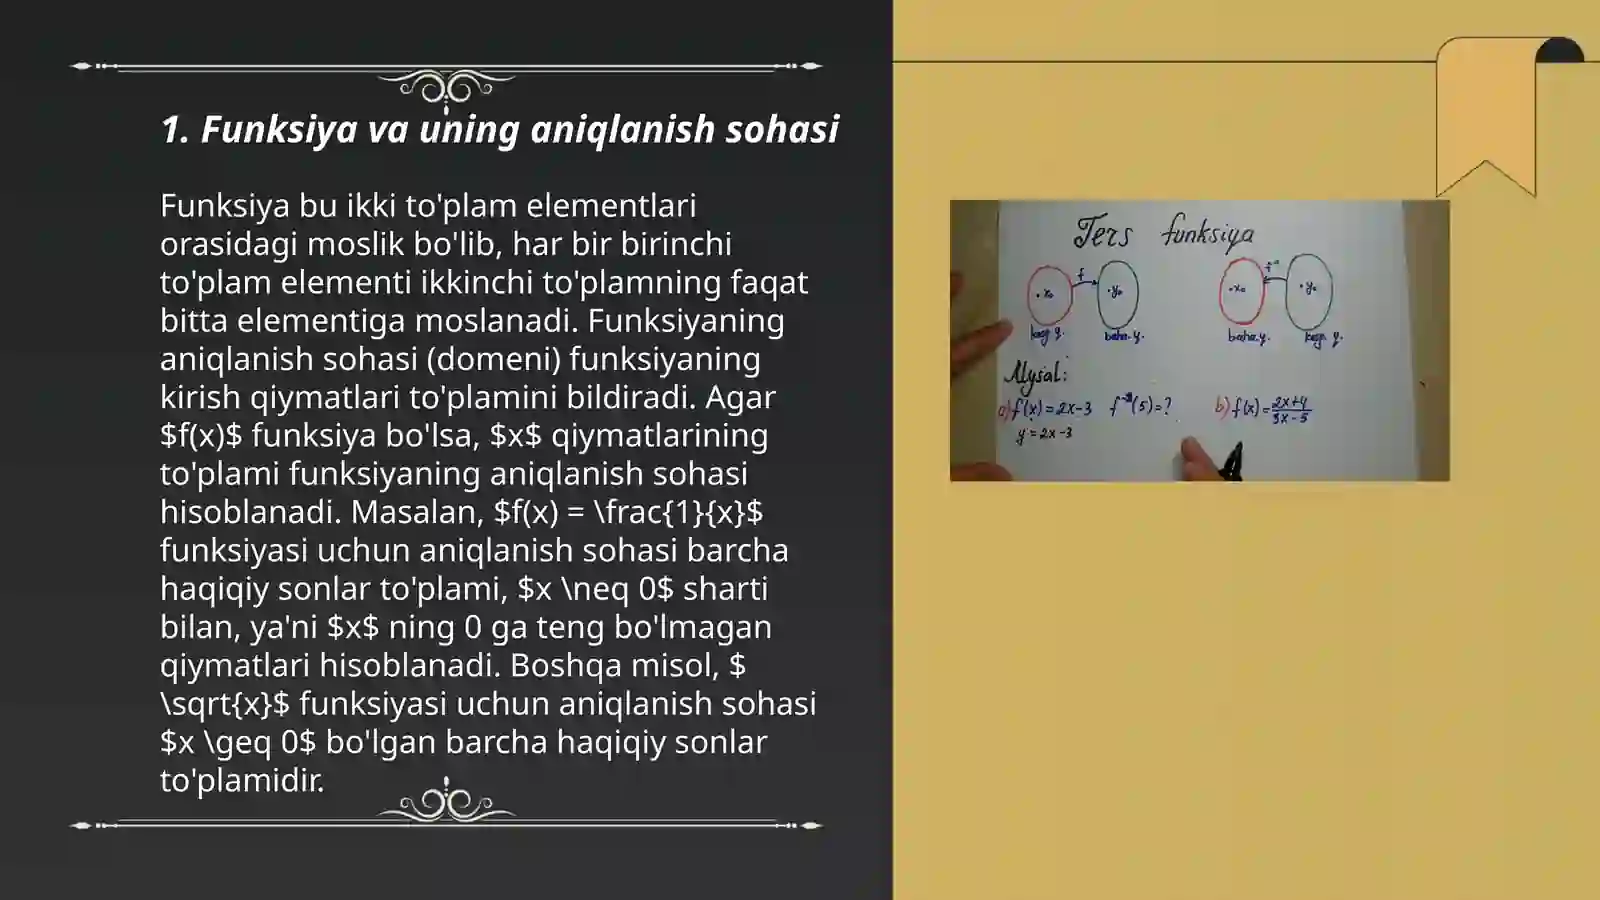 1. Funksiya va uning aniqlanish sohasi
Funksiya bu ikki to'plam elementlari
orasidagi moslik bo'lib, har bir birinchi
to'plam elementi ikkinchi to'plamning faqat
bitta elementiga moslanadi. Funksiyaning
aniqlanish sohasi (domeni) funksiyaning
kirish qiymatlari to'plamini bildiradi. Agar
$f(x)$ funksiya bo'lsa, $x$ qiymatlarining
to'plami funksiyaning aniqlanish sohasi
hisoblanadi. Masalan, $f(x) = \frac{1}{x}$
funksiyasi uchun aniqlanish sohasi barcha
haqiqiy sonlar to'plami, $x \neq 0$ sharti
bilan, ya'ni $x$ ning 0 ga teng bo'lmagan
qiymatlari hisoblanadi. Boshqa misol, $
\sqrt{x}$ funksiyasi uchun aniqlanish sohasi
$x \geq 0$ bo'lgan barcha haqiqiy sonlar
to'plamidir.
Ters funksiya
f f⁻¹
x₀ y₀ x₀ y₀
baha.y. baha.y.
Mysal:
a) f(x)=2x-3 f⁻¹(5)=? b) f(x)=2x+4/3x-5
y=2x-3